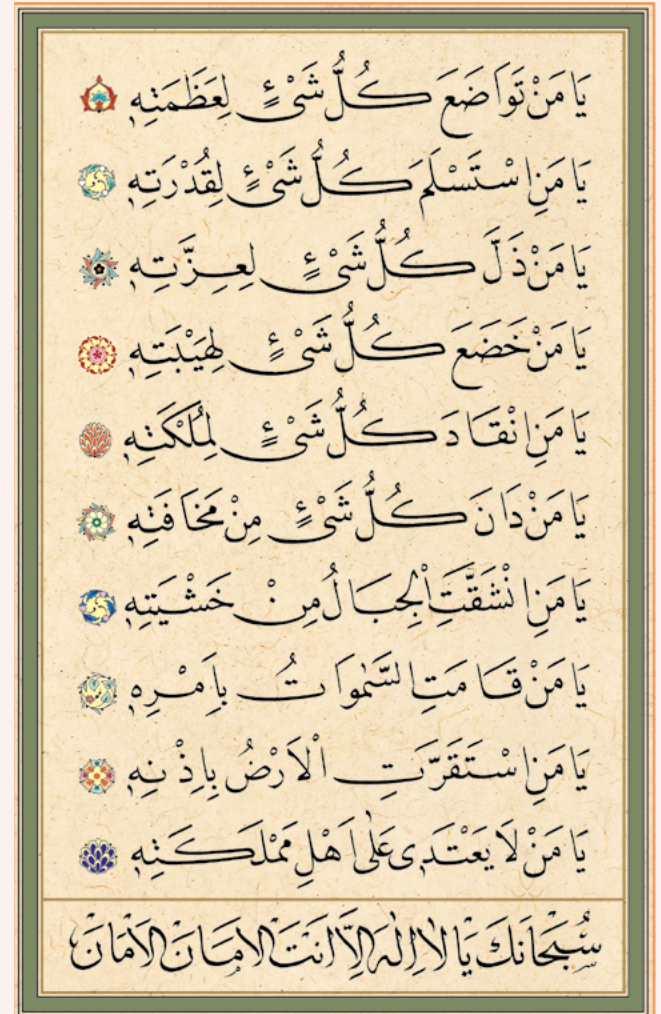 يَا مَنْ تَوَاضَعَ كُلُّ شَىْءٍ لِعَظَمَتِهِ
يَا مَنِ اسْتَسْلَمَ كُلُّ شَىْءٍ لِقُدْرَتِهِ
يَا مَنْ ذَلَّ كُلُّ شَىْءٍ لِعِزَّتِهِ
يَا مَنْ خَضَعَ كُلُّ شَىْءٍ لِهَيْبَتِهِ
يَا مَنِ انْقَادَ كُلُّ شَىْءٍ لِمُلْكَتِهِ
يَا مَنْ دَانَ كُلُّ شَىْءٍ مِنْ مَخَافَتِهِ
يَا مَنِ انْشَقَّتِ الْجِبَالُ مِنْ خَشْيَتِهِ
يَا مَنْ قَامَتِ السَّمٰوَاتُ بِاَمْرِهِ
يَا مَنِ اسْتَقَرَّتِ الْاَرْضُ بِاِذْنِهِ
يَا مَنْ لَا يَعْتَدِى عَلٰى اَهْلِ مَمْلَكَتِهِ
سُبْحَانَكَ يَا لَا اِلٰهَ اِلَّا اَنْتَ الْاَمَانَ الْاَمَانَ